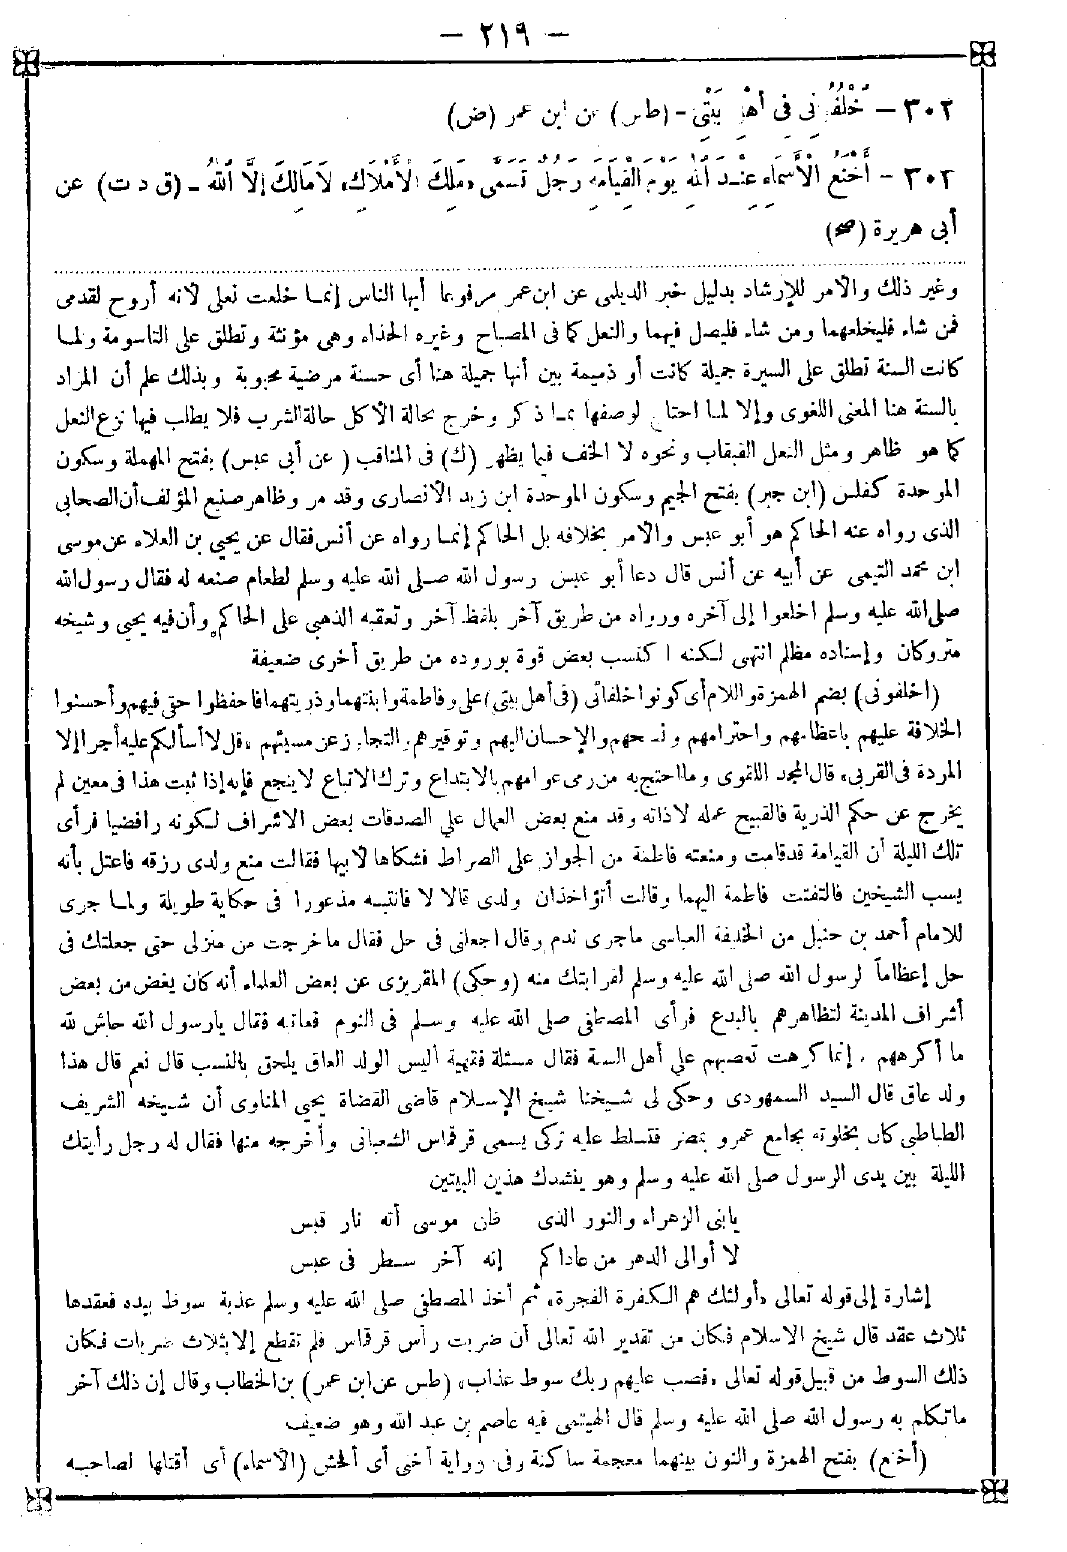 — ٢١٩ —
٣٠٢ — اخْلُفُونِى فِى أَهْلِ بَيْتِى - (طس) عن ابن عمر (ض)
٣٠٢ - أَخْنَعُ الْأَسْمَاءِ عِنْدَ اللهِ يَوْمَ الْقِيَامَةِ رَجُلٌ تَسَمَّى «مَلِكَ الْأَمْلَاكِ» لَامَالِكَ إلَّا اللهُ - (ق د ت) عن
أبى هريرة (صح)
وغير ذلك والأمر للإرشاد بدليل خبر الديلمى عن ابن عمر مرفوعا أيها الناس إنما خلعت نعلى لأنه أروح لقدمى
فمن شاء فليخلعهما ومن شاء فليصل فيهما والنعل كما فى المصباح وغيره الحذاء وهى مؤنثة وتطلق على التاسومة ولما
كانت السنة تطلق على السيرة جميلة كانت أو ذميمة بين أنها جميلة هنا أى حسنة مرضية محبوبة وبذلك علم أن المراد
بالسنة هنا المعنى اللغوى وإلا لما احتاج لوصفها بما ذكر وخرج بحالة الأكل حالة الشرب فلا يطلب فيها نزع النعل
كما هو ظاهر ومثل النعل القبقاب ونحوه لا الخف فيما يظهر (ك) فى المناقب (عن أبى عبس) بفتح المهملة وسكون
الموحدة كفلس (ابن جبر) بفتح الجيم وسكون الموحدة ابن زيد الأنصارى وقد مر وظاهر صنيع المؤلف أن الصحابى
الذى رواه عنه الحاكم هو أبو عبس والأمر بخلافه بل الحاكم إنما رواه عن أنس فقال عن يحيي بن العلاء عن موسى
ابن محمد التيمى عن أبيه عن أنس قال دعا أبو عبس رسول الله صلى الله عليه وسلم لطعام صنعه له فقال رسول الله
صلى الله عليه وسلم اخلعوا إلى آخره ورواه من طريق آخر بلفظ آخر وتعقبه الذهبى على الحاكم وأن فيه يحيى وشيخه
متروكان وإسناده مظلم انتهى لكنه اكتسب بعض قوة بوروده من طريق أخرى ضعيفة
(اخلفونى) بضم الهمزة واللام أى كونوا خلفائى (فى أهل بيتى) على وفاطمة وابنيهما وذريتهما فاحفظوا حقى فيهم وأحسنوا
الخلافة عليهم باعظامهم واحترامهم ونصحهم والإحسان اليهم وتوقيرهم والتجاوز عن مسيئهم «قل لا أسألكم عليه أجرا إلا
المودة فى القربى» قال المجد اللغوى وما احتج به من رمى عوامهم بالابتداع وترك الاتباع لا ينجع فإنه إذا ثبت هذا فى معين لم
يخرج عن حكم الذرية فالقبيح عمله لا ذاته وقد منع بعض العمال على الصدقات بعض الأشراف لكونه رافضيا فرأى
تلك الليلة أن القيامة قد قامت ومنعته فاطمة من الجواز على الصراط فشكاها لأبيها فقالت منع ولدى رزقه فاعتل بأنه
يسب الشيخين فالتفتت فاطمة اليهما وقالت أتؤاخذان ولدى قالا لا فانتبه مذعورا فى حكاية طويلة ولما جرى
للامام أحمد بن حنبل من الخليفة العباسى ماجرى ندم وقال اجعلنى فى حل فقال ماخرجت من منزلى حتى جعلتك فى
حل إعظاماً لرسول الله صلى الله عليه وسلم لقرابتك منه (وحكى) المقريزى عن بعض العلماء أنه كان يغض من بعض
أشراف المدينة لتظاهرهم بالبدع فرأى المصطفى صلى الله عليه وسلم فى النوم فعاتبه فقال يارسول الله حاش لله
ما أكرههم ، إنما كرهت تعصبهم على أهل السنة فقال مسئلة فقهية أليس الولد العاق يلحق بالنسب قال نعم قال هذا
ولد عاق قال السيد السمهودى وحكى لى شيخنا شيخ الإسلام قاضى القضاة يحيى المناوى أن شيخه الشريف
الطباطبى كان بخلوته بجامع عمرو بمصر فتسلط عليه تركى يسمى قرقماس الشعبانى وأخرجه منها فقال له رجل رأيتك
الليلة بين يدى الرسول صلى الله عليه وسلم وهو ينشدك هذين البيتين
يابنى الزهراء والنور الذى ظن موسى أنه نار قبس
لا أوالى الدهر من عاداكم إنه آخر سطر فى عبس
إشارة إلى قوله تعالى «أولئك هم الكفرة الفجرة» ثم أخذ المصطفى صلى الله عليه وسلم عذبة سوط بيده فعقدها
ثلاث عقد قال شيخ الاسلام فكان من تقدير الله تعالى أن ضربت رأس قرقماس فلم تقطع إلا بثلاث ضربات فكان
ذلك السوط من قبيل قوله تعالى «فصب عليهم ربك سوط عذاب» (طس عن ابن عمر) بن الخطاب وقال إن ذلك آخر
ماتكلم به رسول الله صلى الله عليه وسلم قال الهيتمى فيه عاصم بن عبد الله وهو ضعيف
(أخنع) بفتح الهمزة والنون بينهما معجمة ساكنة وفى رواية أخنى أى أفحش (الأسماء) أى أقتلها لصاحبه